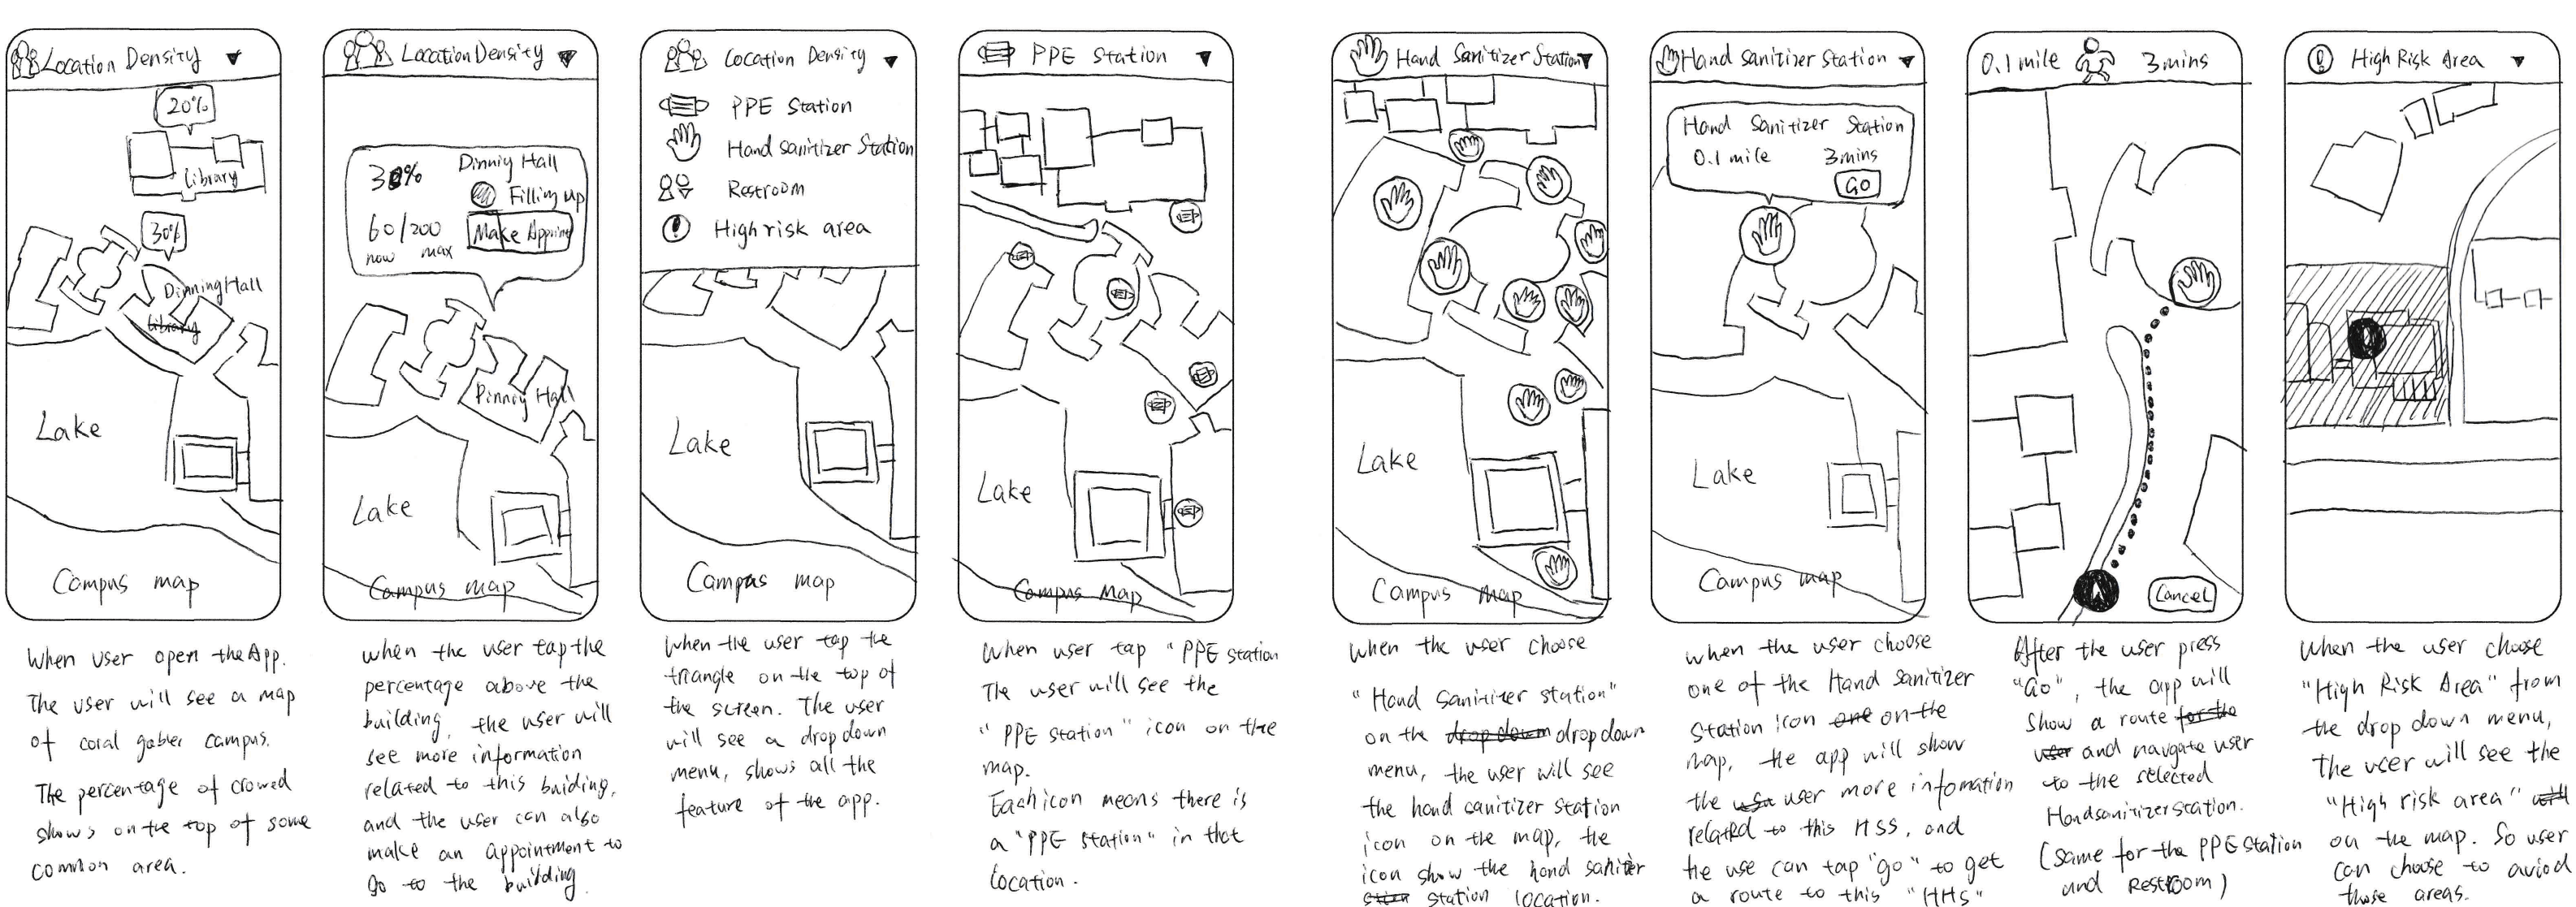 Location Density ▼
20%
Library
30%
Dinning Hall
Library
Lake
Campus map
When user open the App.
The user will see a map
of coral gabler campus.
The percentage of crowed
shows on the top of some
common area.
Location Density ▼
30%
Dinniy Hall
Filling up
60/200
now max
Make Appoint
Dinniy Hall
Lake
Campus map
when the user tap the
percentage above the
building, the user will
see more information
related to this buiding,
and the user can also
make an appointment to
go to the building
Location Density ▼
PPE Station
Hand Sanitizer Station
Restroom
High risk area
Lake
Campus map
When the user tap the
triangle on the top of
the screen. The user
will see a drop down
menu, shows all the
feature of the app.
PPE Station ▼
Lake
Campus Map
When user tap "PPE station
The user will see the
"PPE station" icon on the
map.
Each icon means there is
a "PPE station" in that
location.
Hand Sanitizer Station ▼
Lake
Campus map
when the user choose
"Hand sanitizer station"
on the drop down drop down
menu, the user will see
the hand sanitizer station
icon on the map, the
icon show the hand saniter
station location.
Hand Sanitizer Station ▼
Hand Sanitizer Station
0.1 mile 3mins
GO
Lake
Campus map
when the user choose
one of the Hand sanitizer
station icon one on the
map, the app will show
the user more infomation
related to this HSS, and
the use can tap "go" to get
a route to this "HHS"
0.1 mile 3 mins
Cancel
After the user press
"Go", the app will
show a route for the
user and navgate user
to the selected
Handsanitizerstation.
(same for the PPE Station
and Restroom)
High Risk Area ▼
When the user choose
"High Risk Area" from
the drop down menu,
The user will see the
"High risk area" will
on the map. So user
can choose to aviod
those areas.